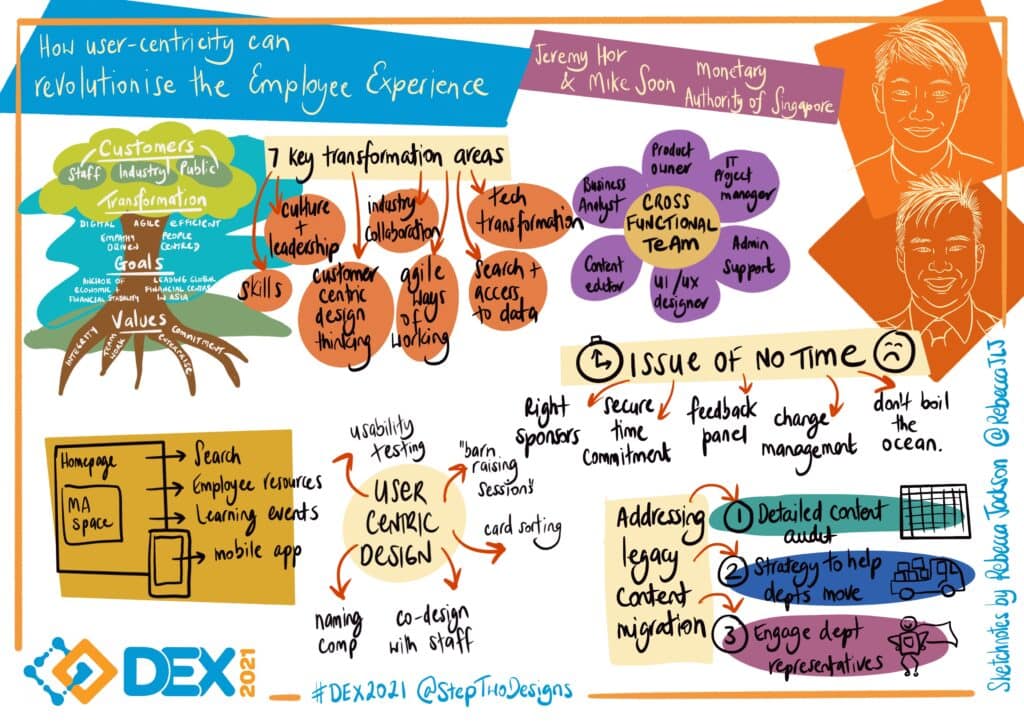 How user-centricity can
revolutionise the Employee Experience
Jeremy Hor
& Mike Soon
Monetary
Authority of Singapore
Customers
Staff Industry Public
Transformation
DIGITAL AGILE EFFICIENT
EMPATHY DRIVEN
PEOPLE CENTRED
Goals
ANCHOR OF
ECONOMIC +
FINANCIAL STABILITY
LEADING GLOBAL
FINANCIAL CENTRE
IN ASIA
Values
INTEGRITY
TEAM
WORK
ENTERPRISE
COMMITMENT
7 key transformation areas
skills
culture
+
leadership
customer
centric
design
thinking
industry
collaboration
agile
ways
of
working
search +
access
to data
tech
transformation
CROSS
FUNCTIONAL
TEAM
Product
owner
IT
Project
manager
Admin
Support
UI/UX
designer
Content
editor
Business
Analyst
ISSUE OF NO TIME
Right
sponsors
secure
time
commitment
feedback
panel
change
management
don't boil
the
ocean.
Homepage
MA
space
Search
Employee resources
Learning events
mobile app
USER
CENTRIC
DESIGN
usability
testing
"barn
raising
sessions"
card sorting
co-design
with staff
naming
comp
Addressing
legacy
content
migration
1 Detailed content
audit
2 Strategy to help
depts move
3 Engage dept
representatives
DEX 2021
#DEX2021 @StepTwoDesigns
Sketchnotes by Rebecca Jackson @RebeccaJLJ